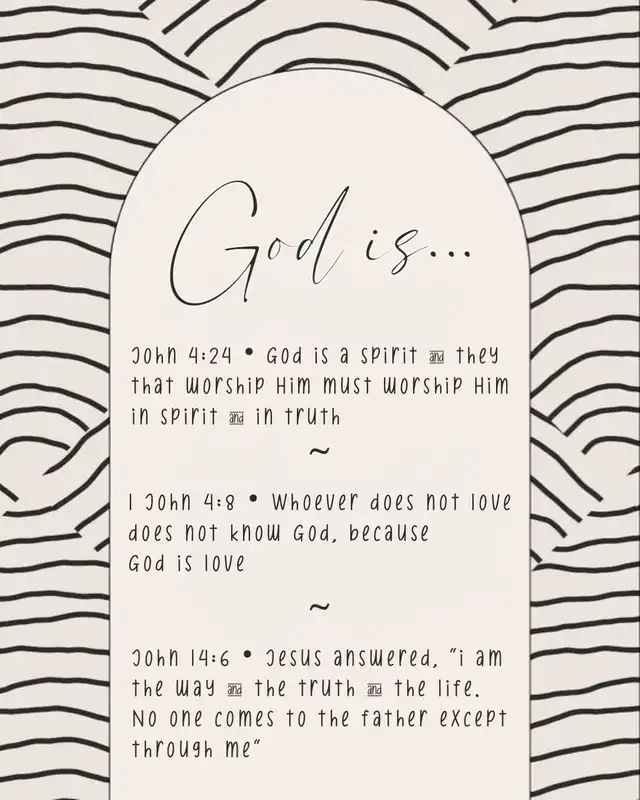 God is...
John 4:24 • God is a spirit and they
that worship Him must worship Him
in spirit and in truth
~
1 John 4:8 • Whoever does not love
does not know God, because
God is love
~
John 14:6 • Jesus answered, "i am
the way and the truth and the life.
No one comes to the father except
through me"